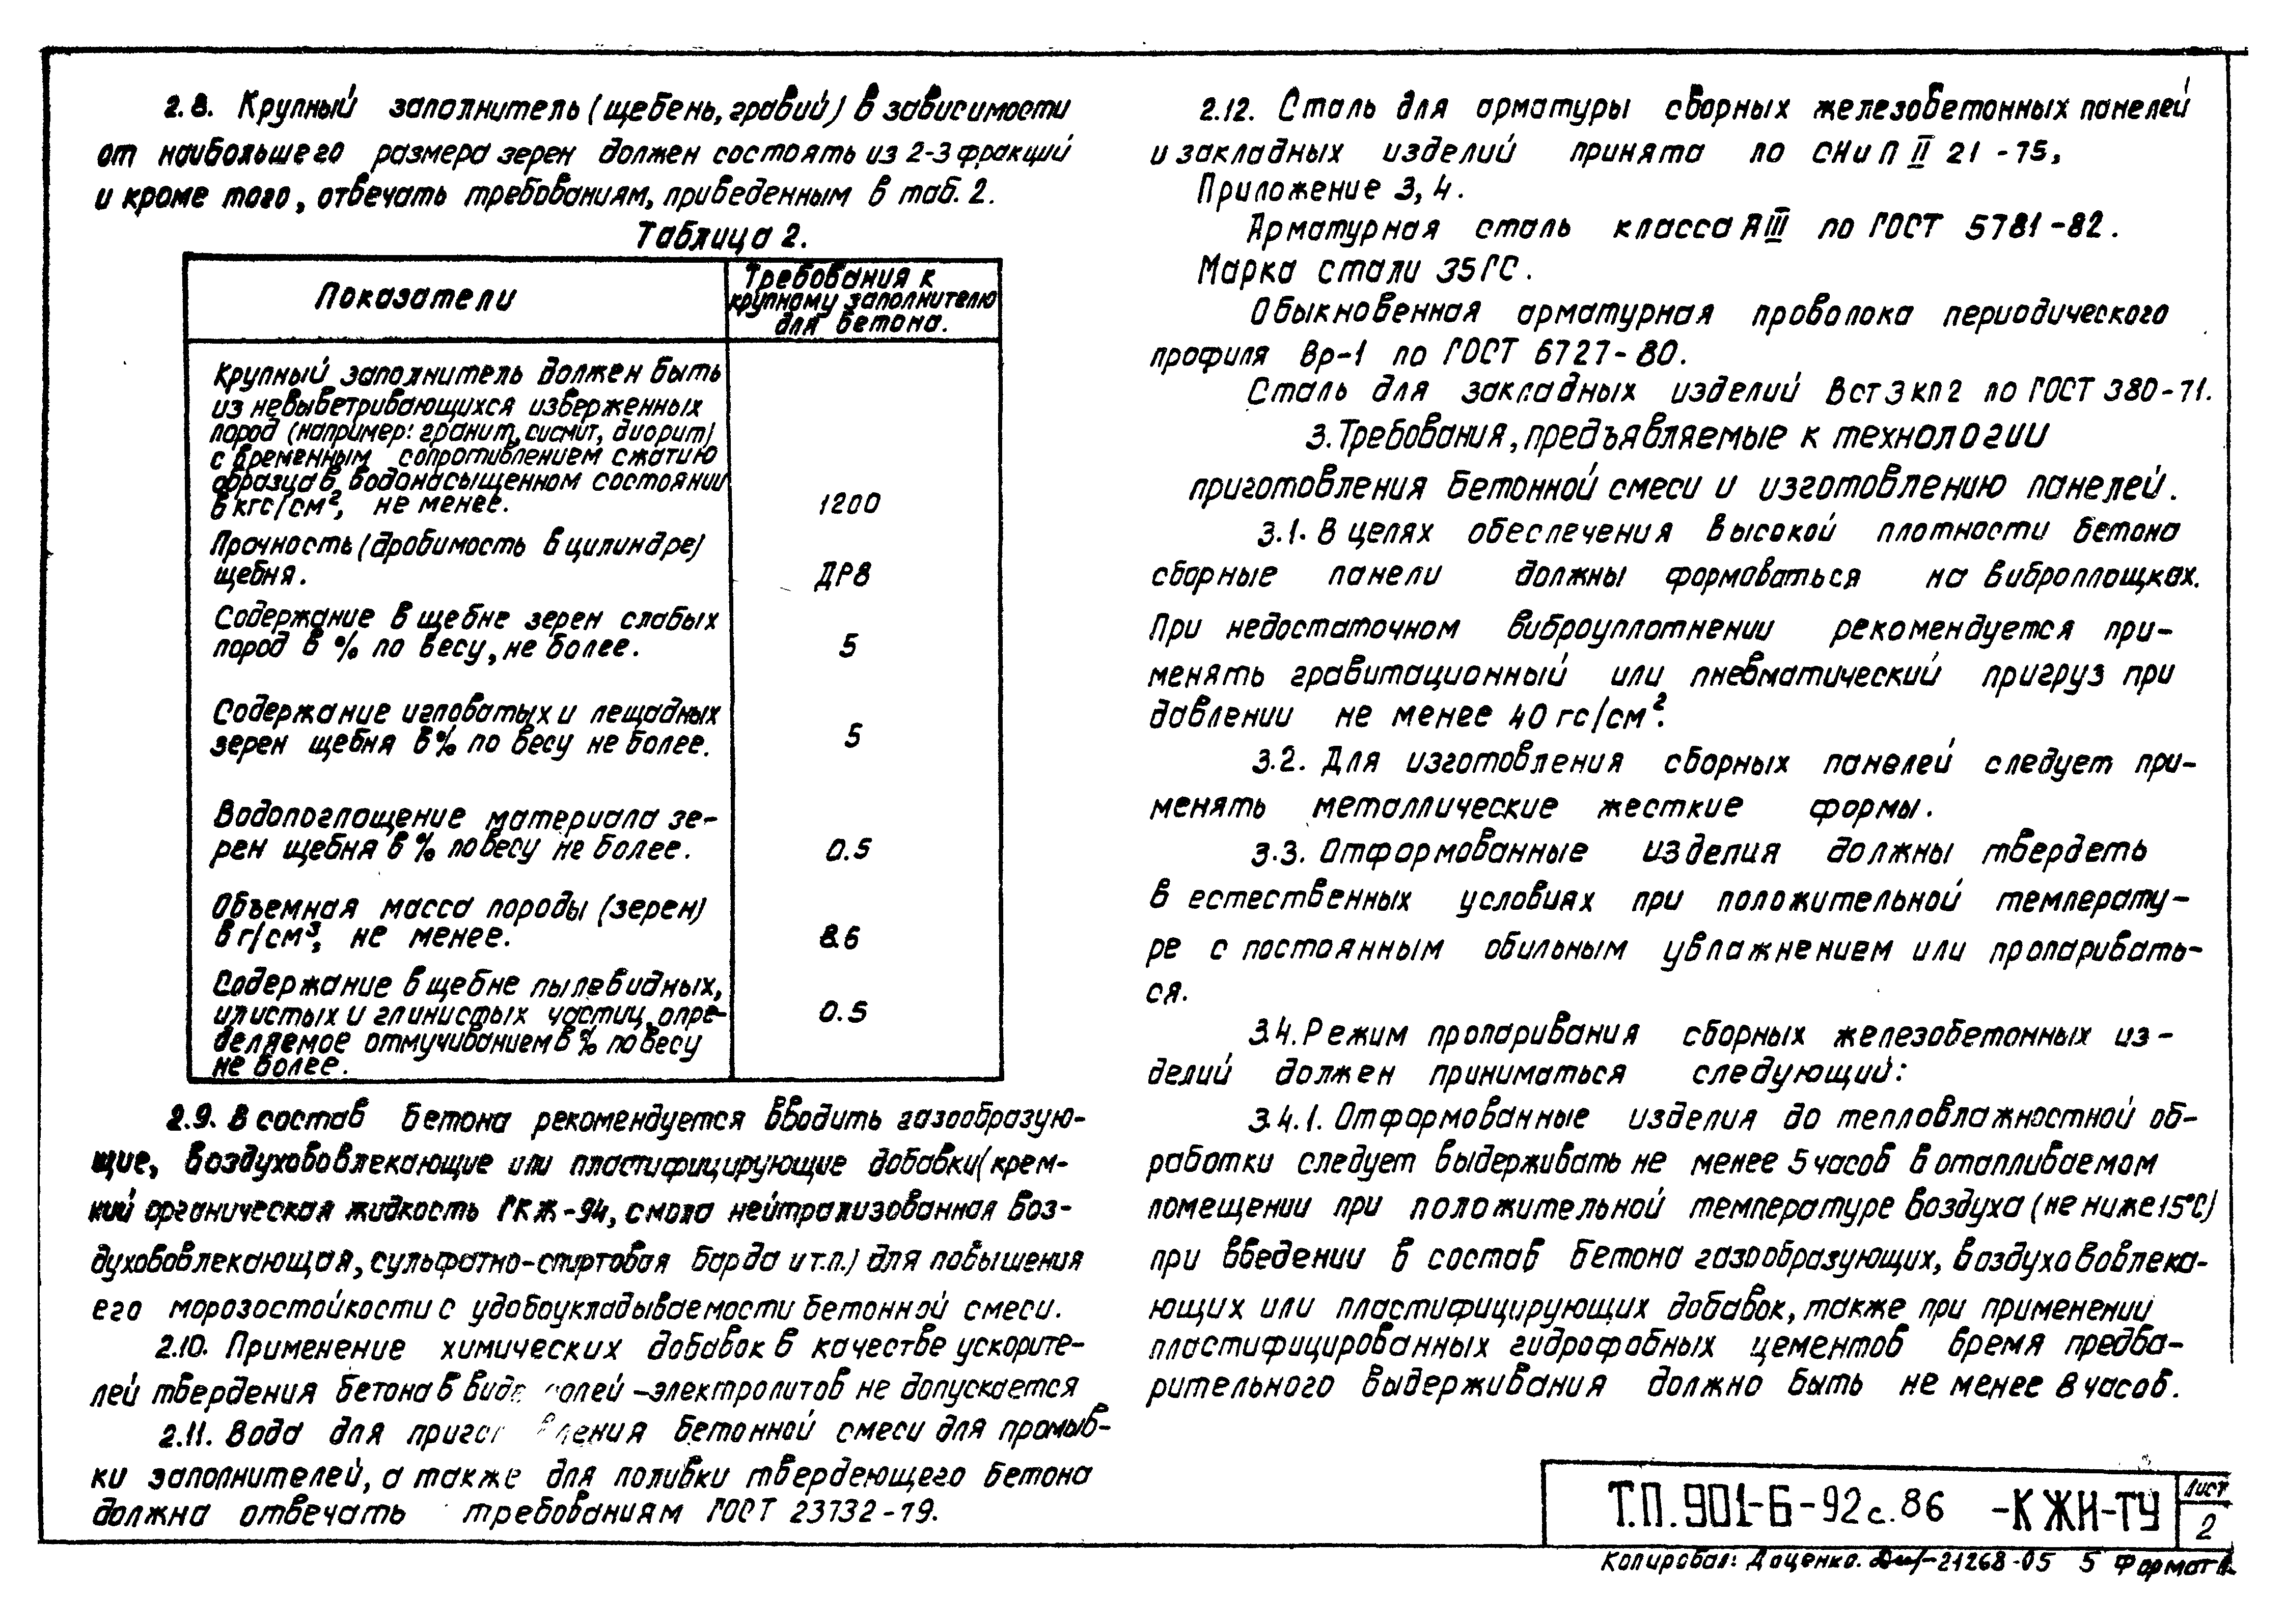 2.8. Крупный заполнитель (щебень, гравий) в зависимости
от наибольшего размера зерен должен состоять из 2-3 фракций
и кроме того, отвечать требованиям, приведенным в таб. 2.
Таблица 2.
Показатели
Требования к
крупному заполнителю
для бетона.
Крупный заполнитель должен быть
из невыветривающихся изверженных
пород (например: гранит, сиснит, диорит)
с временным сопротивлением сжатию
образца в водонасыщенном состоянии
в кгс/см², не менее. 1200
Прочность (дробимость в цилиндре)
щебня. ДР8
Содержание в щебне зерен слабых
пород в % по весу, не более. 5
Содержание игловатых и лещадных
зерен щебня в % по весу не более. 5
Водопоглощение материала зе-
рен щебня в % по весу не более. 0.5
Объемная масса породы (зерен)
в г/см³, не менее.
Содержание в щебне пылевидных,
илистых и глинистых частиц, опре- 0.5
деляемое отмучиванием в % по весу
не более.
2.9. В состав бетона рекомендуется вводить газообразую-
щие, воздухововлекающие или пластифицирующие добавки (крем-
ний органическая жидкость ГКЖ-94, смола нейтрализованная воз-
духововлекающая, сульфатно-спиртовая барда и т.п.) для повышения
его морозостойкости с удобоукладываемости бетонной смеси.
2.10. Применение химических добавок в качестве ускорите-
лей твердения бетона в виде солей -электролитов не допускается
2.11. Вода для приготовления бетонной смеси для промыв-
ки заполнителей, а также для поливки твердеющего бетона
должна отвечать требованиям ГОСТ 23732-79.
2.12. Сталь для арматуры сборных железобетонных панелей
и закладных изделий принята по СНиП II 21 -75,
Приложение 3, 4.
Арматурная сталь класса АIII по ГОСТ 5781-82.
Марка стали 35ГС.
Обыкновенная арматурная проволока периодического
профиля Вр-1 по ГОСТ 6727-80.
Сталь для закладных изделий Вст3кп2 по ГОСТ 380-71.
3. Требования, предъявляемые к технологии
приготовления бетонной смеси и изготовлению панелей.
3.1. В целях обеспечения высокой плотности бетона
сборные панели должны формоваться на виброплощках.
При недостаточном виброуплотнении рекомендуется при-
менять гравитационный или пневматический пригруз при
давлении не менее 40 гс/см².
3.2. Для изготовления сборных панелей следует при-
менять металлические жесткие формы.
3.3. Отформованные изделия должны твердеть
в естественных условиях при положительной температу-
ре с постоянным обильным увлажнением или пропаривать-
ся.
3.4. Режим пропаривания сборных железобетонных из-
делий должен приниматься следующий:
3.4.1. Отформованные изделия до тепловлажностной об-
работки следует выдерживать не менее 5 часов в отапливаемом
помещении при положительной температуре воздуха (не ниже 15°С)
при введении в состав бетона газообразующих, воздухововлека-
ющих или пластифицирующих добавок, также при применении
пластифицированных гидрофобных цементов время предва-
рительного выдерживания должно быть не менее 8 часов.
Т.П. 901-6-92с.86 -КЖИ-ТУ
Лист
2
Копировал: Даценко. 21268-05 5 Формат